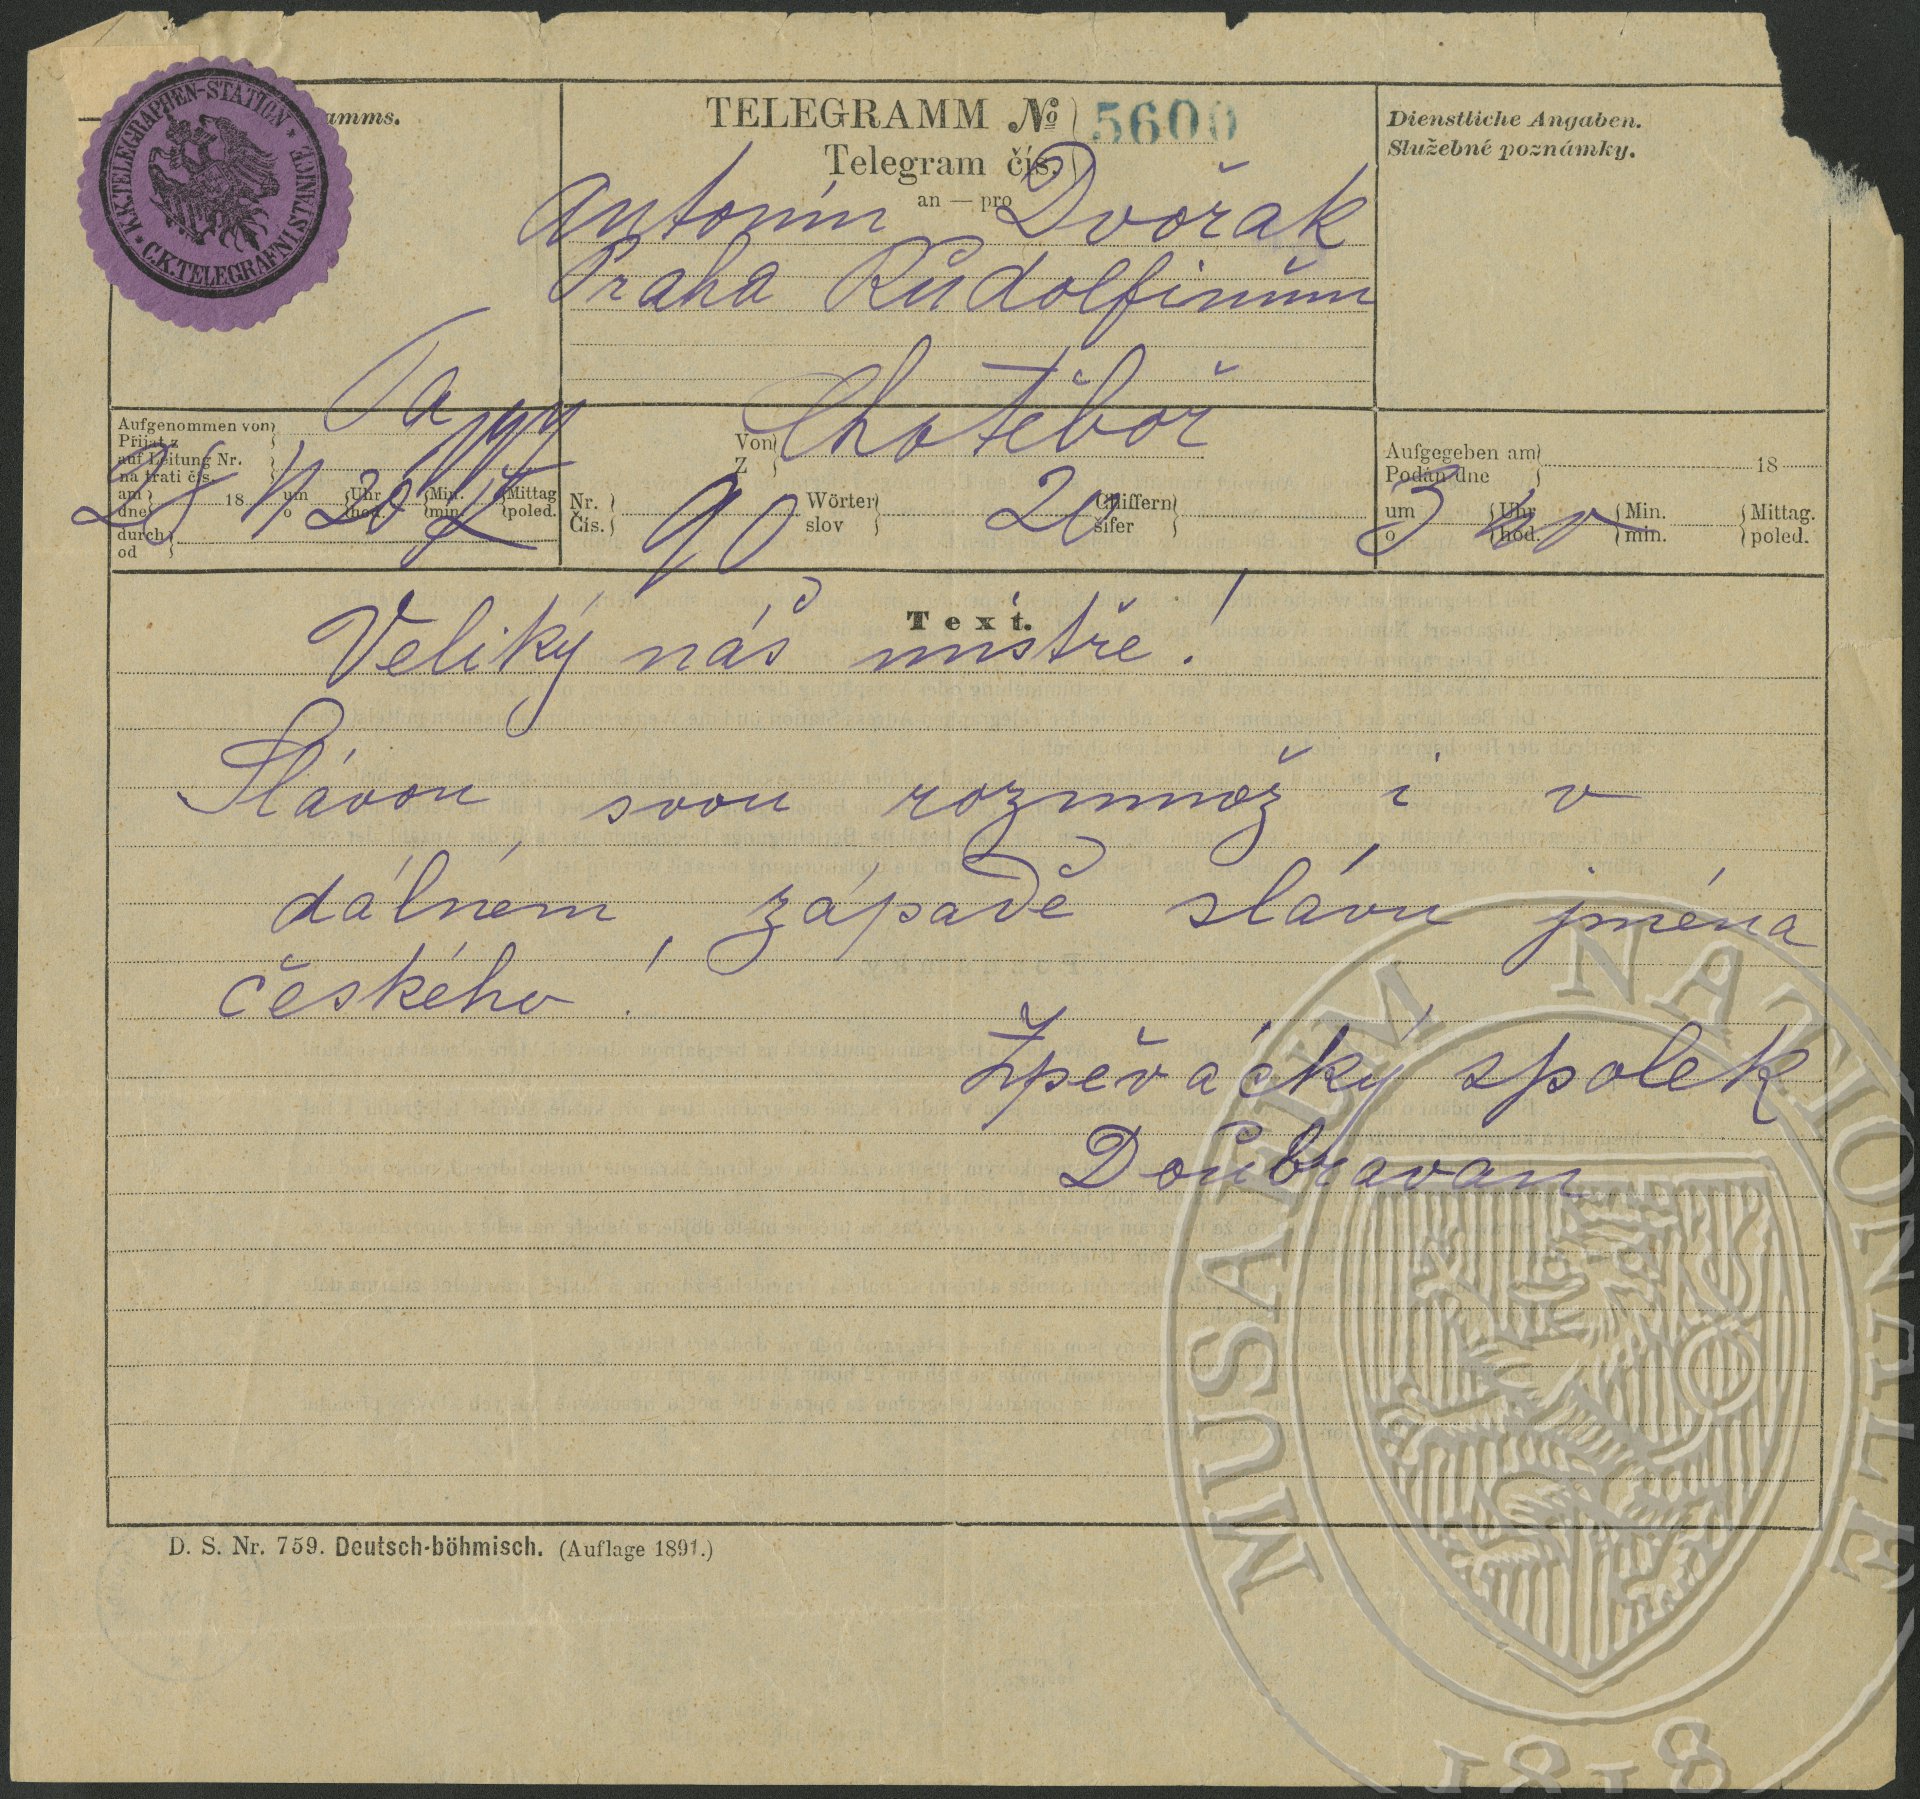 K.K.TELEGRAPHEN-STATION * C.K.TELEGRAFNI STANICE *
amms.
TELEGRAMM № 5600
Telegram čís.
an — pro
Antonín Dvořak
Praha Rudolfinum
Dienstliche Angaben.
Služebné poznámky.
Aufgenommen von
Přijat z
auf Leitung Nr.
na trati čís.
am
dne
18
um
o
Uhr
hod.
Min.
min.
Mittag
poled.
durch
od
20
Von
Z
Chotěboř
Nr.
Čís.
90
Wörter
slov
20
Chiffern
šifer
Aufgegeben am
Podán dne
18
um
o
3
Uhr
hod.
Min.
min.
Mittag.
poled.
Text.
Veliký náš mistře!
Slávou svou rozmnož i v
dálném západě slávu jména
českého!
Zpěvácký spolek
Doubravan
D. S. Nr. 759. Deutsch-böhmisch. (Auflage 1891.)
MUSAEUM NATIONALE
1818